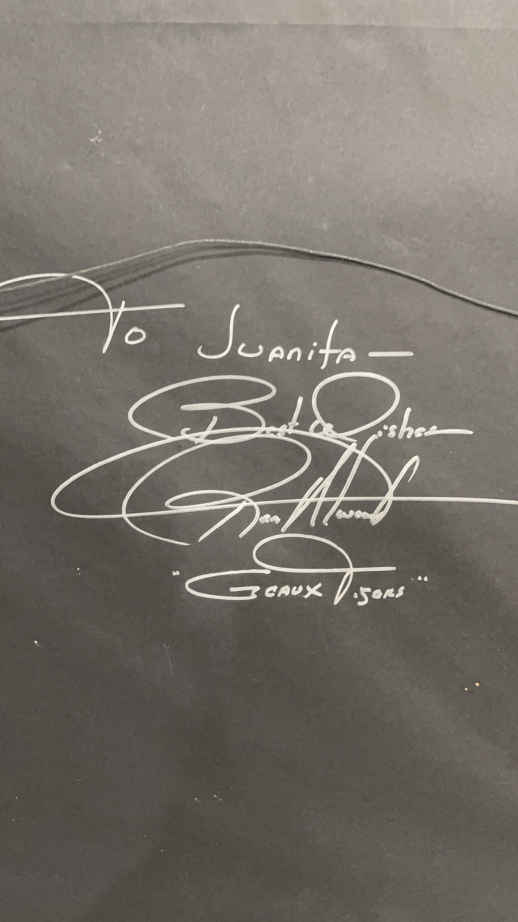 To Juanita —
Best Wishes
"Geaux Tigers"